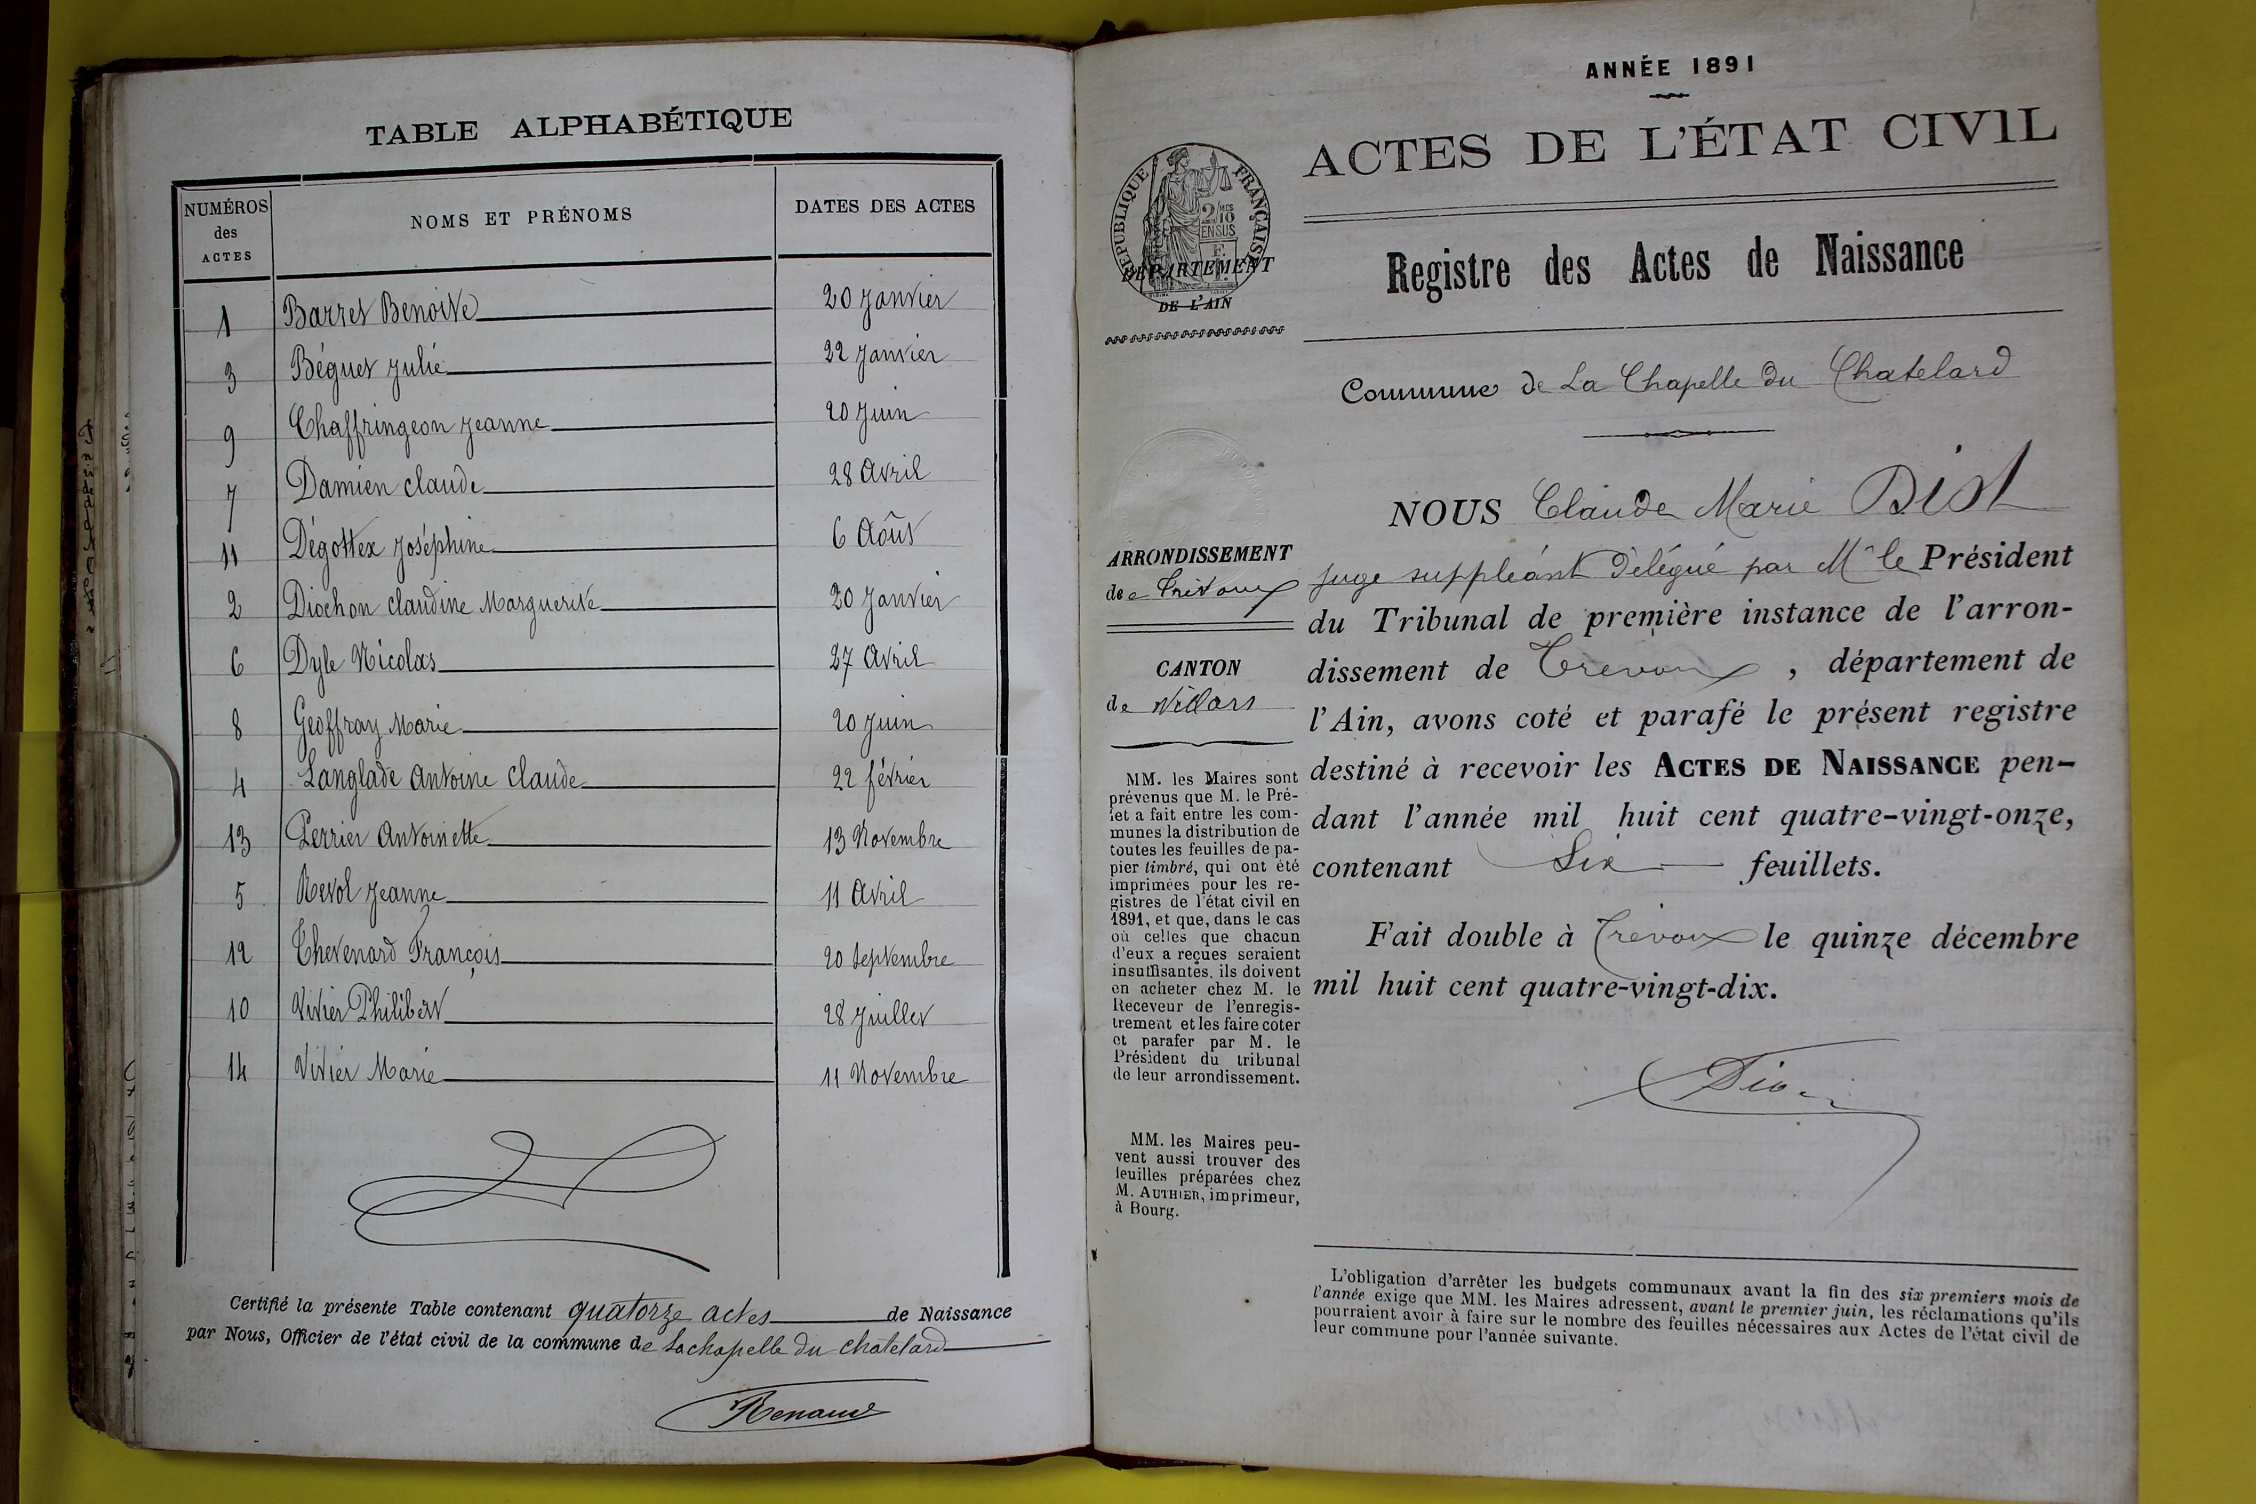 TABLE ALPHABÉTIQUE
NUMÉROS des ACTES NOMS ET PRÉNOMS DATES DES ACTES
1 Barret Benoite 20 Janvier
3 Béguet Julie 22 Janvier
9 Chaffringeon Jeanne 20 Juin
7 Damien Claude 28 Avril
11 Dégottex Joséphine 6 Août
2 Diochon Claudine Marguerite 20 Janvier
6 Dyle Nicolas 27 Avril
8 Geoffray Marie 20 Juin
4 Langlade Antoine Claude 22 février
13 Perrier Antoinette 13 Novembre
5 Revol Jeanne 11 Avril
12 Thevenard François 20 Septembre
10 Vivier Philibert 28 Juillet
14 Vivier Marie 11 Novembre
Certifié la présente Table contenant quatorze actes de Naissance
par Nous, Officier de l'état civil de la commune de Lachapelle du chatelard
Renaud
ANNÉE 1891
ACTES DE L'ÉTAT CIVIL
RÉPUBLIQUE FRANÇAISE
2/10 MES
EN SUS
DÉPARTEMENT
DE L'AIN
Registre des Actes de Naissance
Commune de La Chapelle du Chatelard
ARRONDISSEMENT
de Trévoux
CANTON
de Villars
MM. les Maires sont
prévenus que M. le Pré-
fet a fait entre les com-
munes la distribution de
toutes les feuilles de pa-
pier timbré, qui ont été
imprimées pour les re-
gistres de l'état civil en
1891, et que, dans le cas
où celles que chacun
d'eux a reçues seraient
insuffisantes, ils doivent
en acheter chez M. le
Receveur de l'enregis-
trement et les faire coter
et parafer par M. le
Président du tribunal
de leur arrondissement.
MM. les Maires peu-
vent aussi trouver des
feuilles préparées chez
M. AUTHIER, imprimeur,
à Bourg.
NOUS Claude Marie
Juge suppléant délégué par Mr le Président
du Tribunal de première instance de l'arron-
dissement de Trevoux, département de
l'Ain, avons coté et parafé le présent registre
destiné à recevoir les ACTES DE NAISSANCE pen-
dant l'année mil huit cent quatre-vingt-onze,
contenant Six feuillets.
Fait double à Trévoux le quinze décembre
mil huit cent quatre-vingt-dix.
L'obligation d'arrêter les budgets communaux avant la fin des six premiers mois de
l'année exige que MM. les Maires adressent, avant le premier juin, les réclamations qu'ils
pourraient avoir à faire sur le nombre des feuilles nécessaires aux Actes de l'état civil de
leur commune pour l'année suivante.